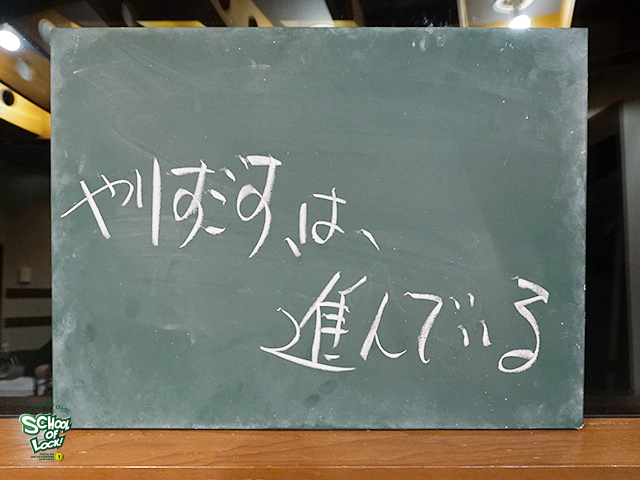 やりすごす、は、
進んでいる
SCHOOL
OF
LOCK!